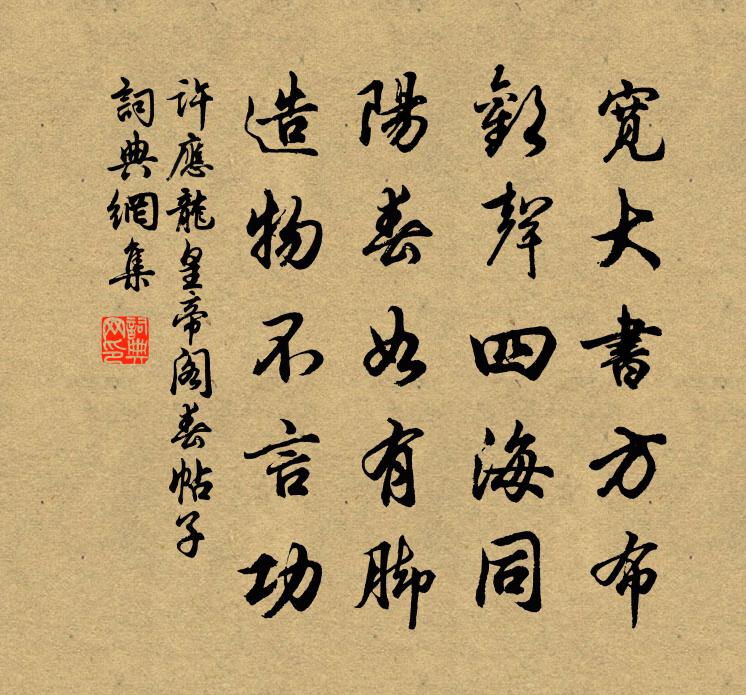 寬大書方布
歡聲四海同
陽春如有腳
造物不言功
許應龍皇帝閣春帖子
詞典網集
詞典
网印